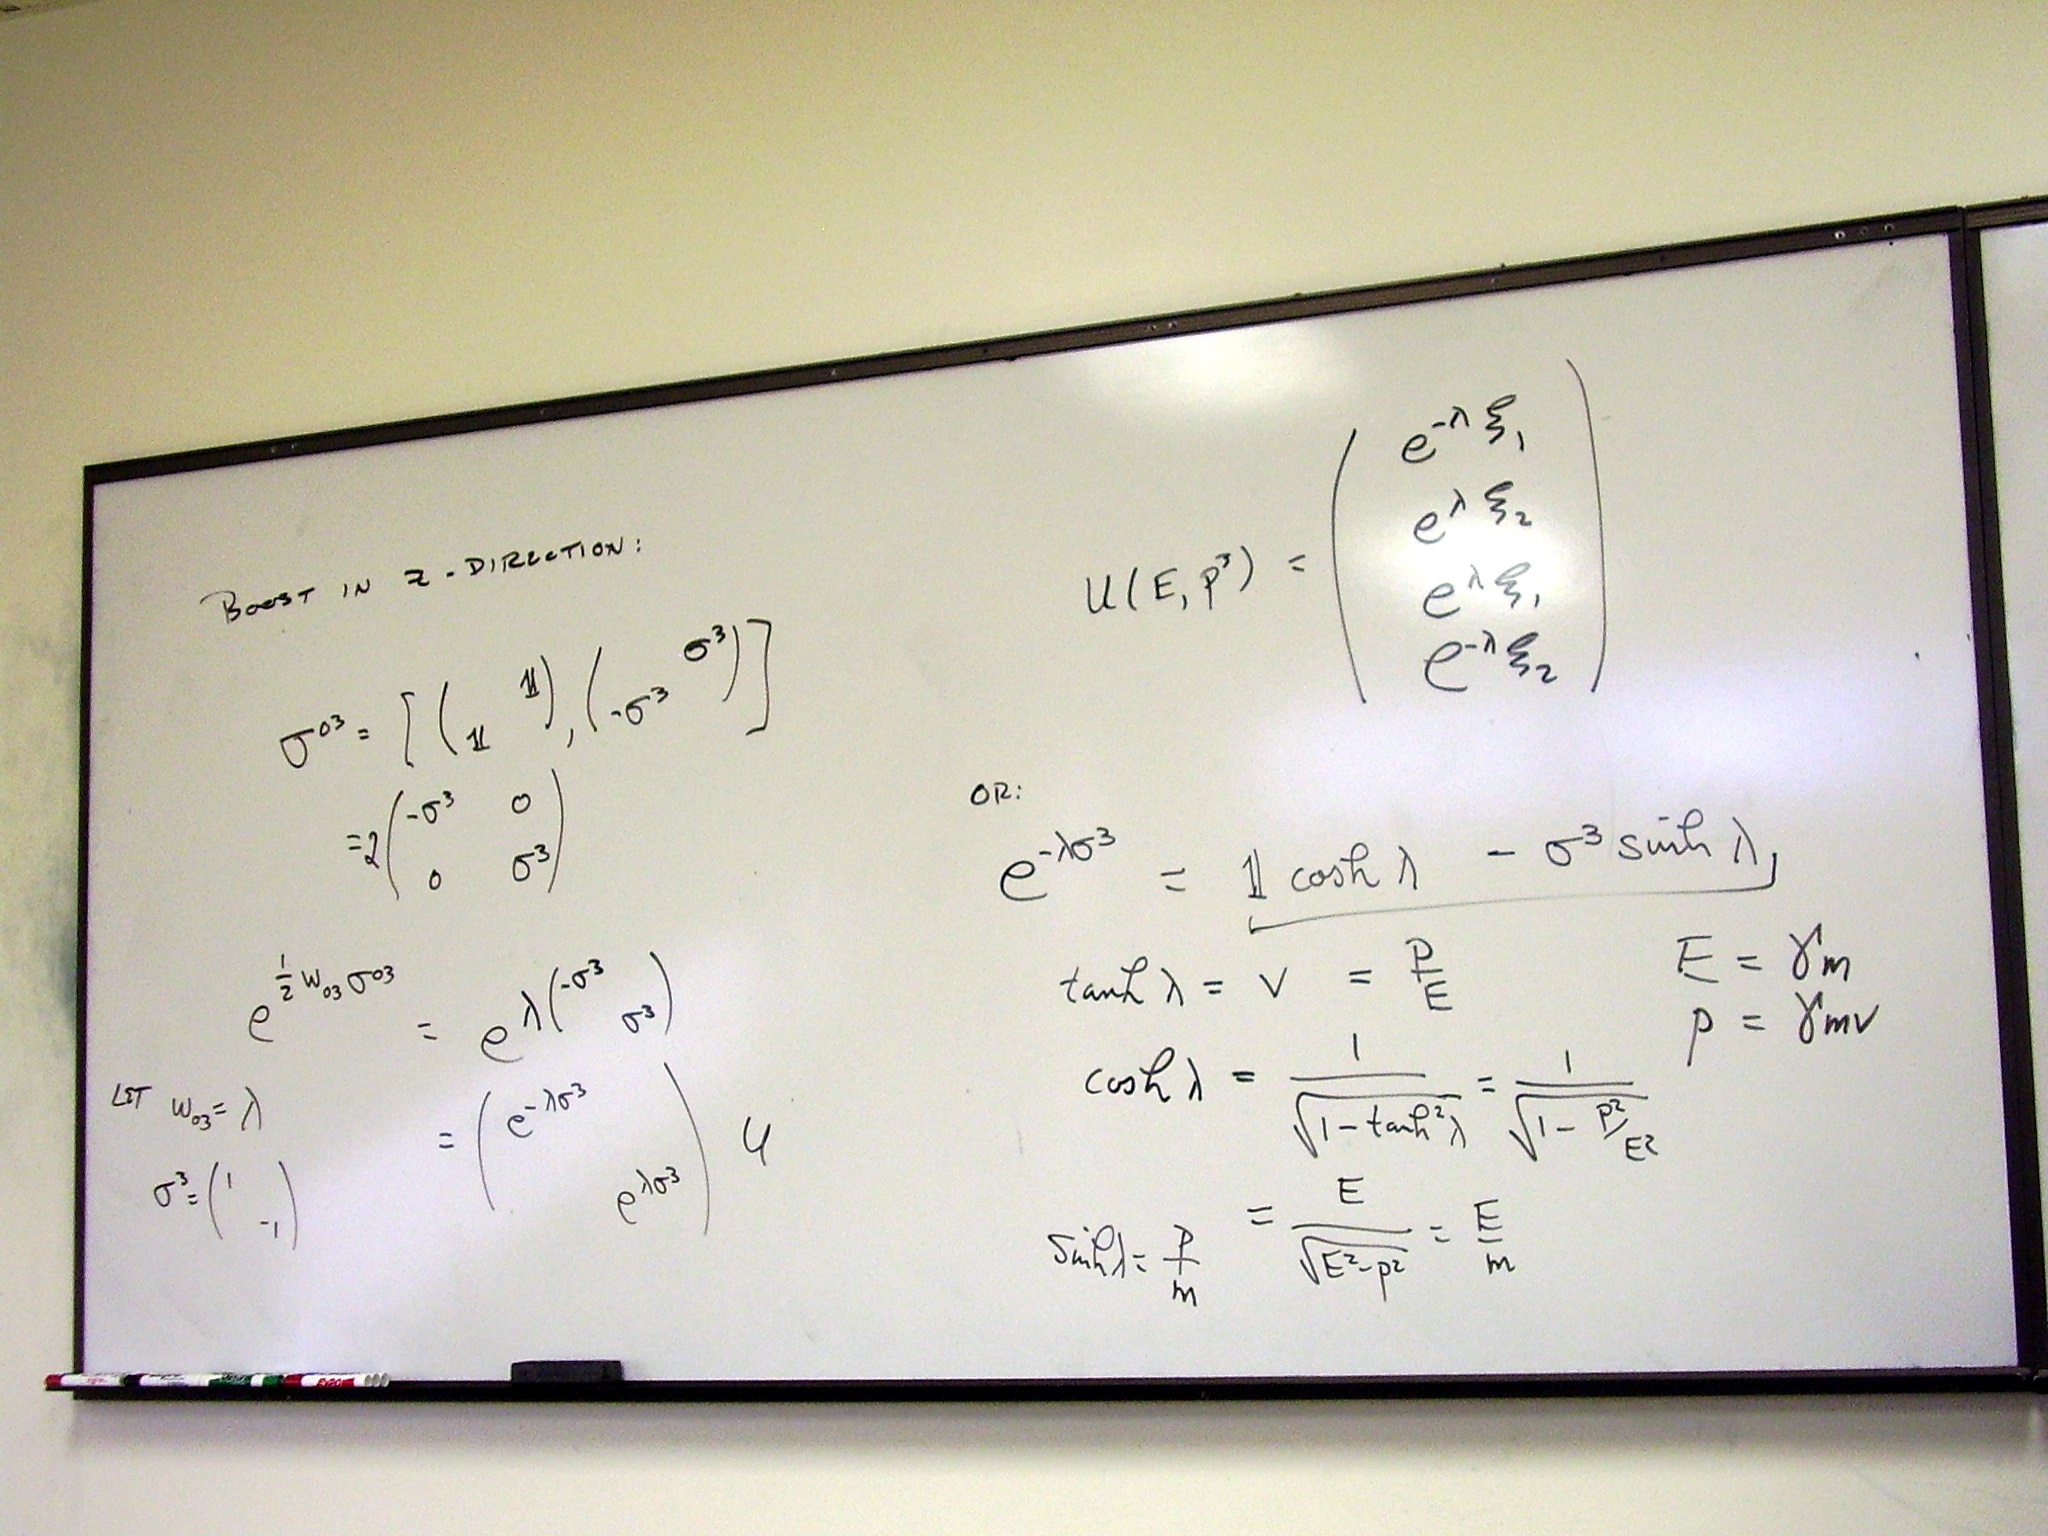 BOOST IN Z-DIRECTION:
σ⁰³ = [( 𝟙 ; 𝟙 ), ( σ³ ; -σ³ )]
= 2 ( -σ³ 0 ; 0 σ³ )
e^{½ w₀₃ σ⁰³} = e^{λ( -σ³ ; σ³ )}
LET w₀₃ = λ
= ( e^{-λσ³} ; e^{λσ³} ) U
σ³ = ( 1 ; -1 )
U(E, p³) = ( e^{-λ} ξ₁ ; e^{λ} ξ₂ ; e^{λ} ξ₁ ; e^{-λ} ξ₂ )
OR:
e^{-λσ³} = 𝟙 cosh λ - σ³ sinh λ
tanh λ = v = p/E
E = γm
p = γmv
cosh λ = 1/√(1 - tanh²λ) = 1/√(1 - p²/E²)
= E/√(E²-p²) = E/m
sinh λ = p/m
EXPO